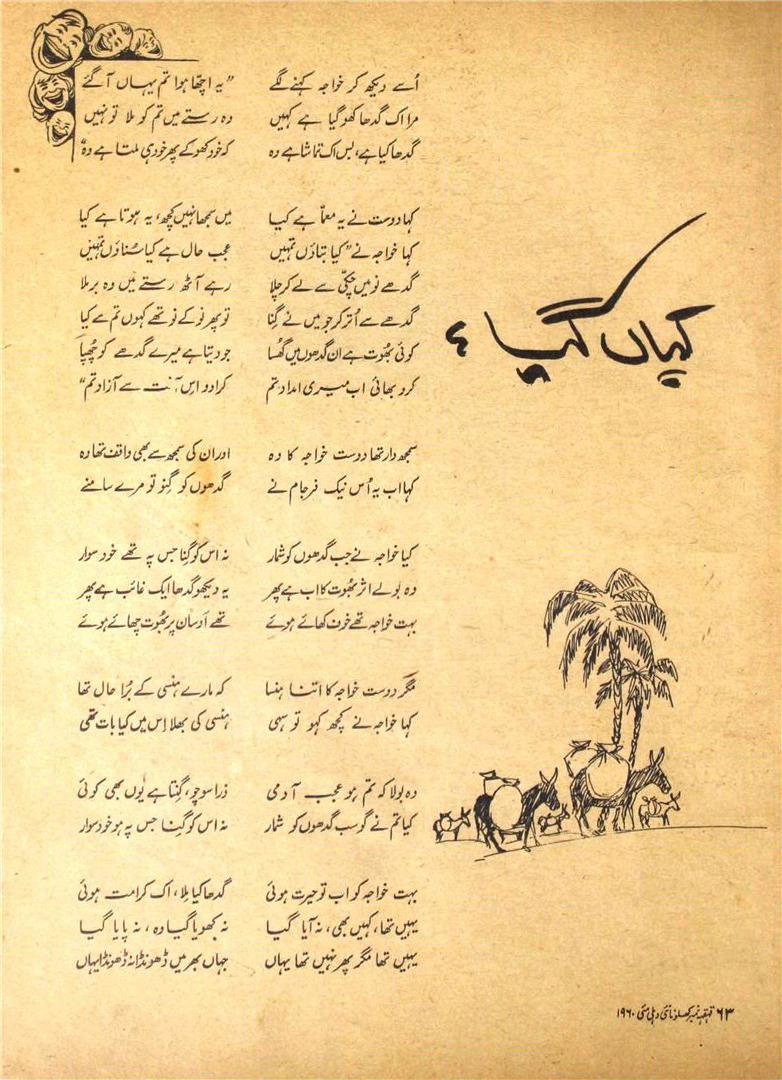 کہاں گیا ؟
اُسے دیکھ کر خواجہ کہنے لگے ”یہ اچھا ہوا تم یہاں آ گئے
مرا اک گدھا کھو گیا ہے کہیں وہ رستے میں تم کو ملا تو نہیں
گدھا کیا ہے، بس اک تماشا ہے وہ کہ خود کھو کے پھر خود ہی ملتا ہے وہ“
کہا دوست نے یہ معمّا ہے کیا میں سمجھا نہیں کچھ، یہ ہوتا ہے کیا
کہا خواجہ نے ”کیا بتاؤں تمہیں عجب حال ہے کیا سُناؤں تمہیں
گدھے نو میں چکّی سے لے کر چلا رہے آٹھ رستے میں وہ برملا
گدھے سے اُتر کر جو میں نے گِنا تو پھر نو کے نو تھے کہوں تم سے کیا
کوئی بھُوت ہے ان گدھوں میں گھُسا جو دیتا ہے میرے گدھے کو چھُپا
کرو بھائی اب میری امداد تم کرا دو اس آفت سے آزاد تم“
سمجھ دار تھا دوست خواجہ کا وہ اور ان کی سمجھ سے بھی واقف تھا وہ
کہا اب یہ اُس نیک فرجام نے گدھوں کو گِنو تو مرے سامنے
کیا خواجہ نے جب گدھوں کو شمار نہ اس کو گِنا جس پہ تھے خود سوار
وہ بولے اثر بھُوت کا اب ہے پھر یہ دیکھو گدھا ایک غائب ہے پھر
بہت خواجہ تھے خوف کھائے ہوئے تھے اوسان پر بھُوت چھائے ہوئے
مگر دوست خواجہ کا اتنا ہنسا کہ مارے ہنسی کے بُرا حال تھا
کہا خواجہ نے کچھ کہو تو سہی ہنسی کی بھلا اِس میں کیا بات تھی
وہ بولا کہ تم ہو عجب آدمی ذرا سوچو، گِنتا ہے یُوں بھی کوئی
کیا تم نے گو سب گدھوں کو شمار نہ اس کو گِنا جس پہ ہو خود سوار
بہت خواجہ کو اب تو حیرت ہوئی گدھا کیا مِلا، اک کرامت ہوئی
یہیں تھا، کہیں بھی، نہ آیا گیا نہ کھویا گیا وہ، نہ پایا گیا
یہیں تھا مگر پھر نہیں تھا یہاں جہاں بھر میں ڈھونڈا نہ ڈھونڈا یہاں
۶۳ قہقہہ نمبر کھلونا نئی دہلی مئی ۱۹۶۰